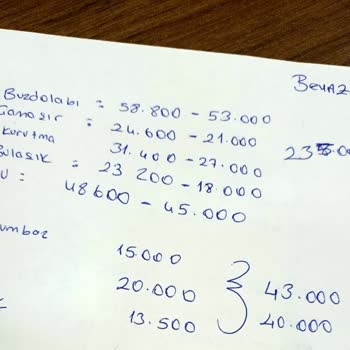 BEYAZ
Buzdolabı = 58.800 - 53.000
Çamaşır = 24.600 - 21.000
Kurutma 31.400 - 27.000
Bulaşık = 23 200 - 18.000
U = 48600 - 45.000
umbaz
15.000
20.000
13.500
43.000
40.000